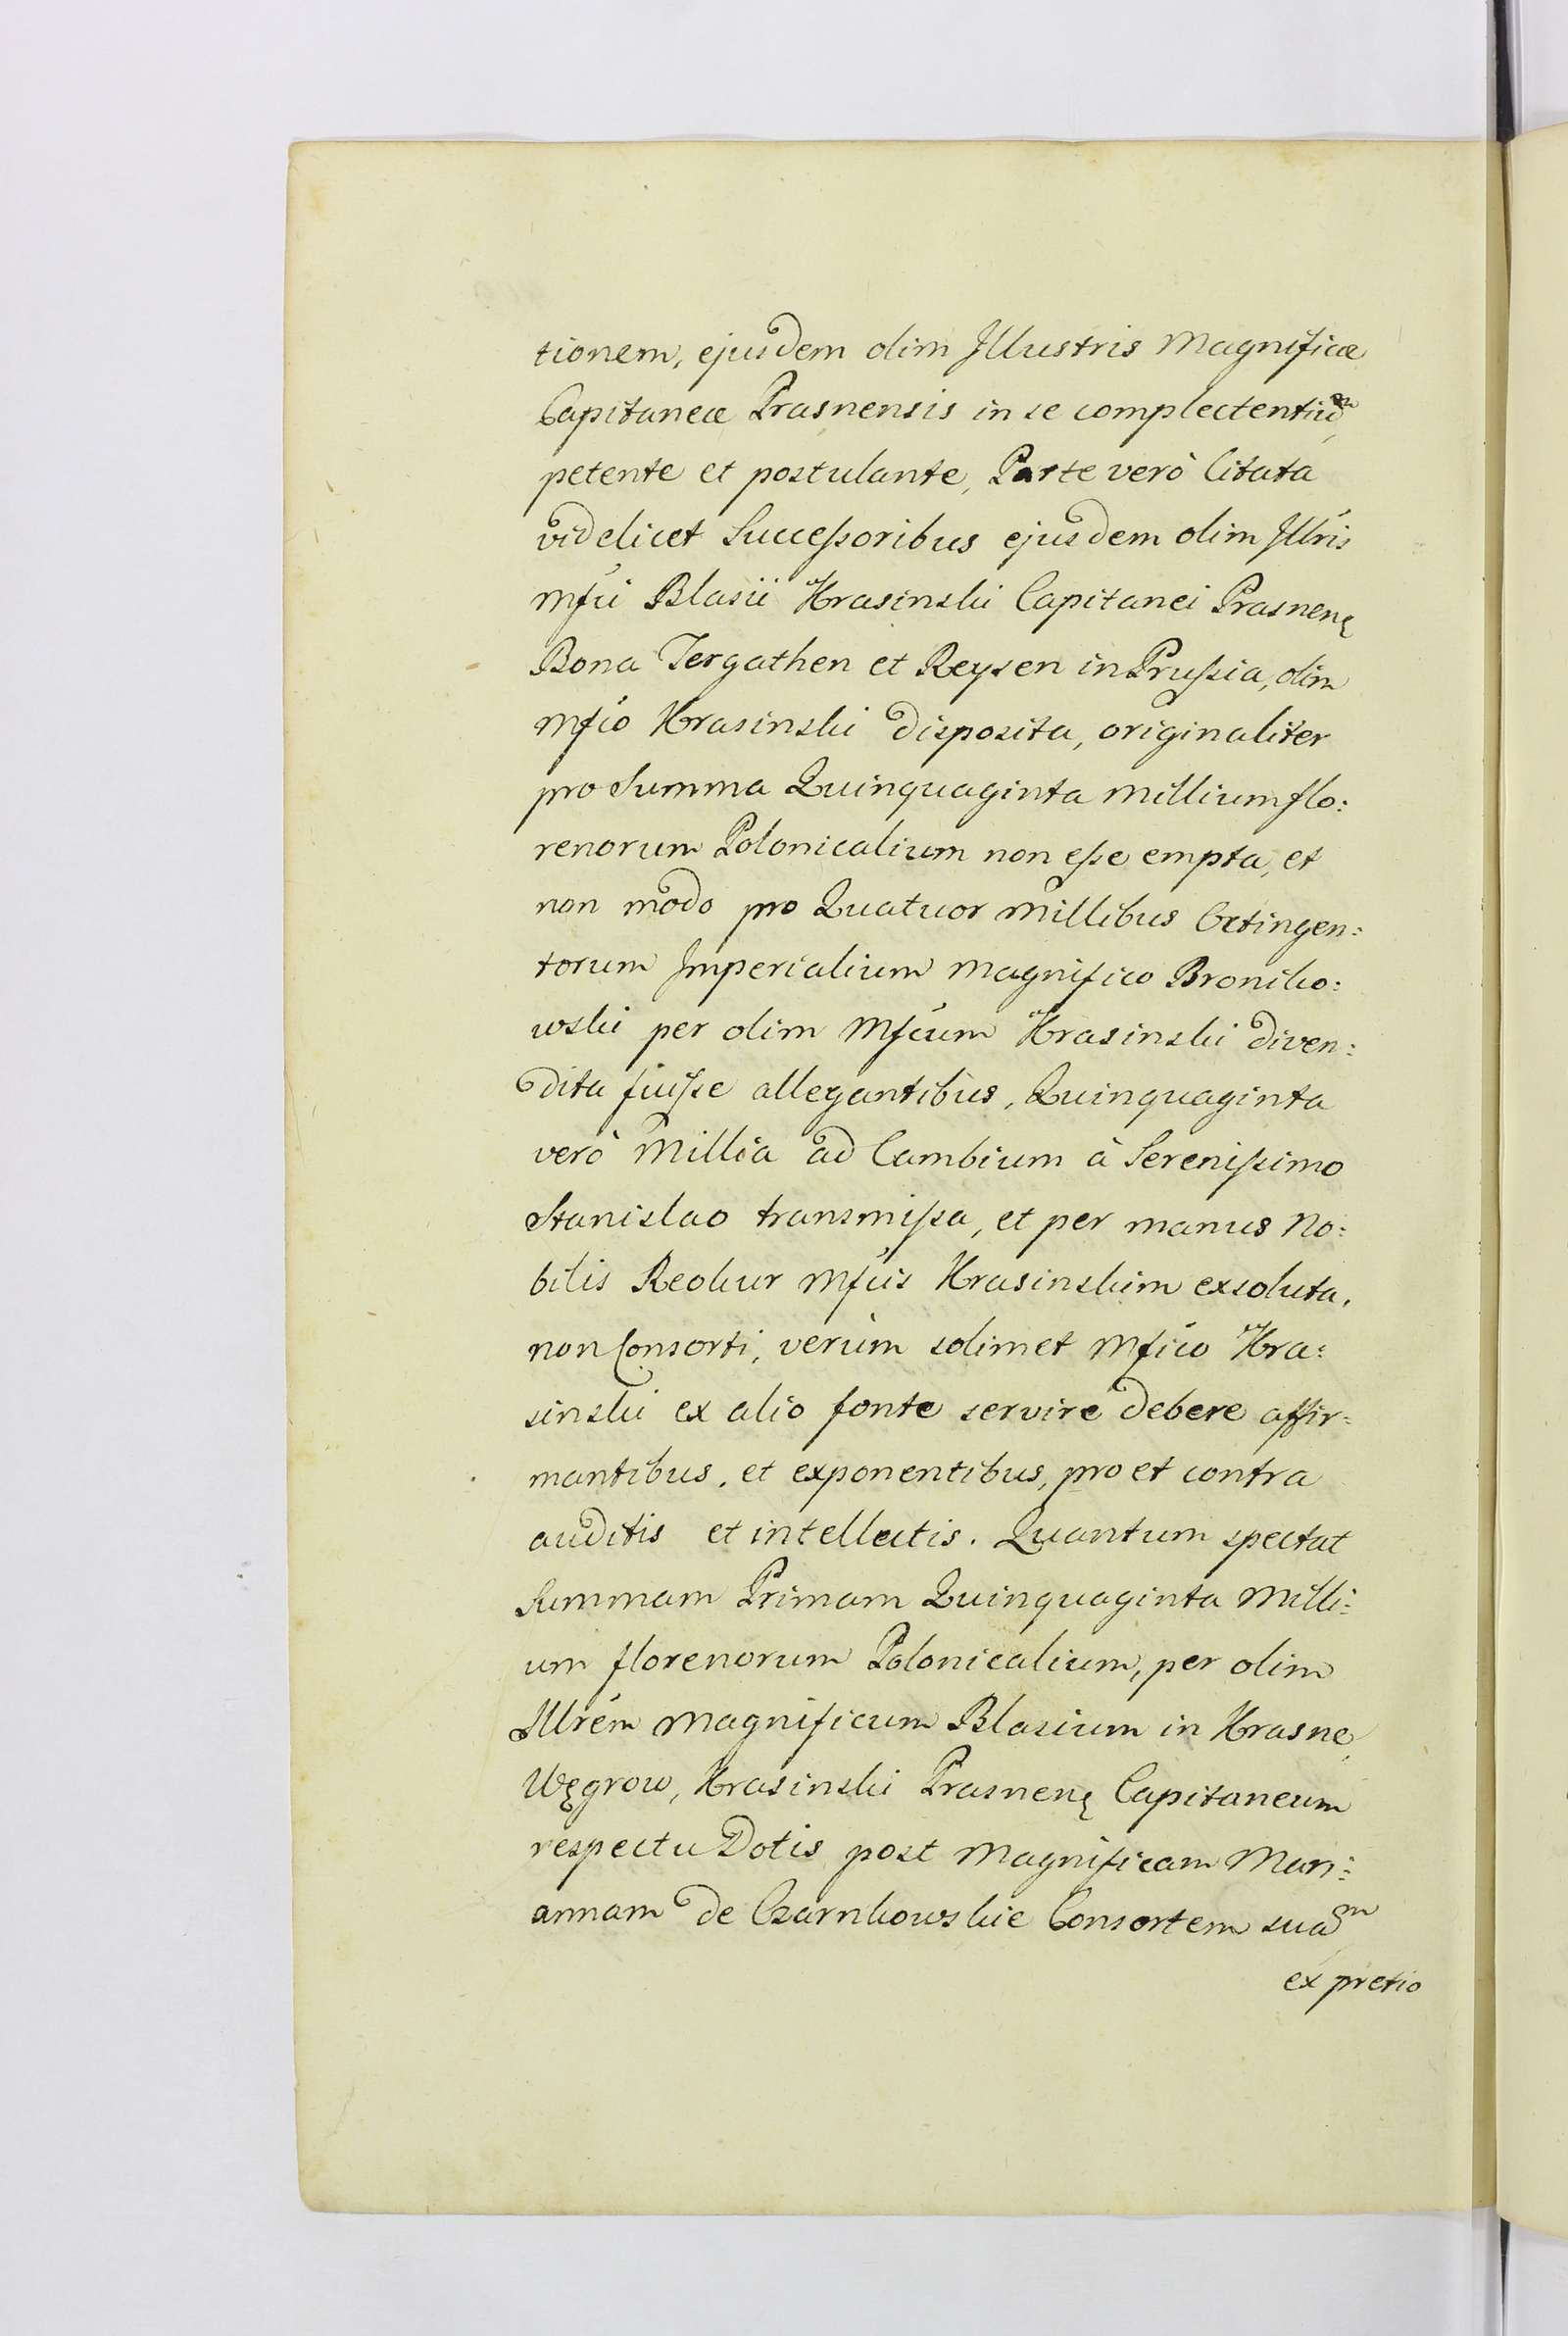 tionem, ejusdem olim Jllustris Magnificæ
Capitaneæ Prasnensis in se complectentiũm,
petente et postulante, Parte verò Citata
videlicet Succeſsoribus ejusdem olim Jllris
Mfci Blasii Krasinski Capitanei Prasnenę
Bona Jergathen et Reysen in Pruſsia, olim
Mfco Krasinski disposita, originaliter
pro Summa Quinquaginta Millium flo:
renorum Polonicalium non eſse empta, et
non modo pro Quatuor Millibus Octingen:
torum Jmperialium Magnifico Broniko:
wski per olim Mfcum Krasinski diven:
dita fuiſse allegantibus, Quinquaginta
verò Millia ad Cambium à Sereniſsimo
Stanislao transmiſsa, et per manus No:
bilis Rekur Mfcis Krasinskim exsoluta,
non Consorti, verùm solimet Mfico Kra:
sinski ex alio fonte servire debere affir:
mantibus, et exponentibus, pro et contra
auditis et intellectis. Quantum spectat
Summam Primam Quinquaginta Milli:
um florenorum Polonicalium, per olim
Jllrem Magnificum Blasium in Krasne,
Węgrow, Krasinski Prasnenę Capitaneum
respectu Dotis post Magnificam Mari:
annam de Czarnkowskie Consortem suam
ex pretio